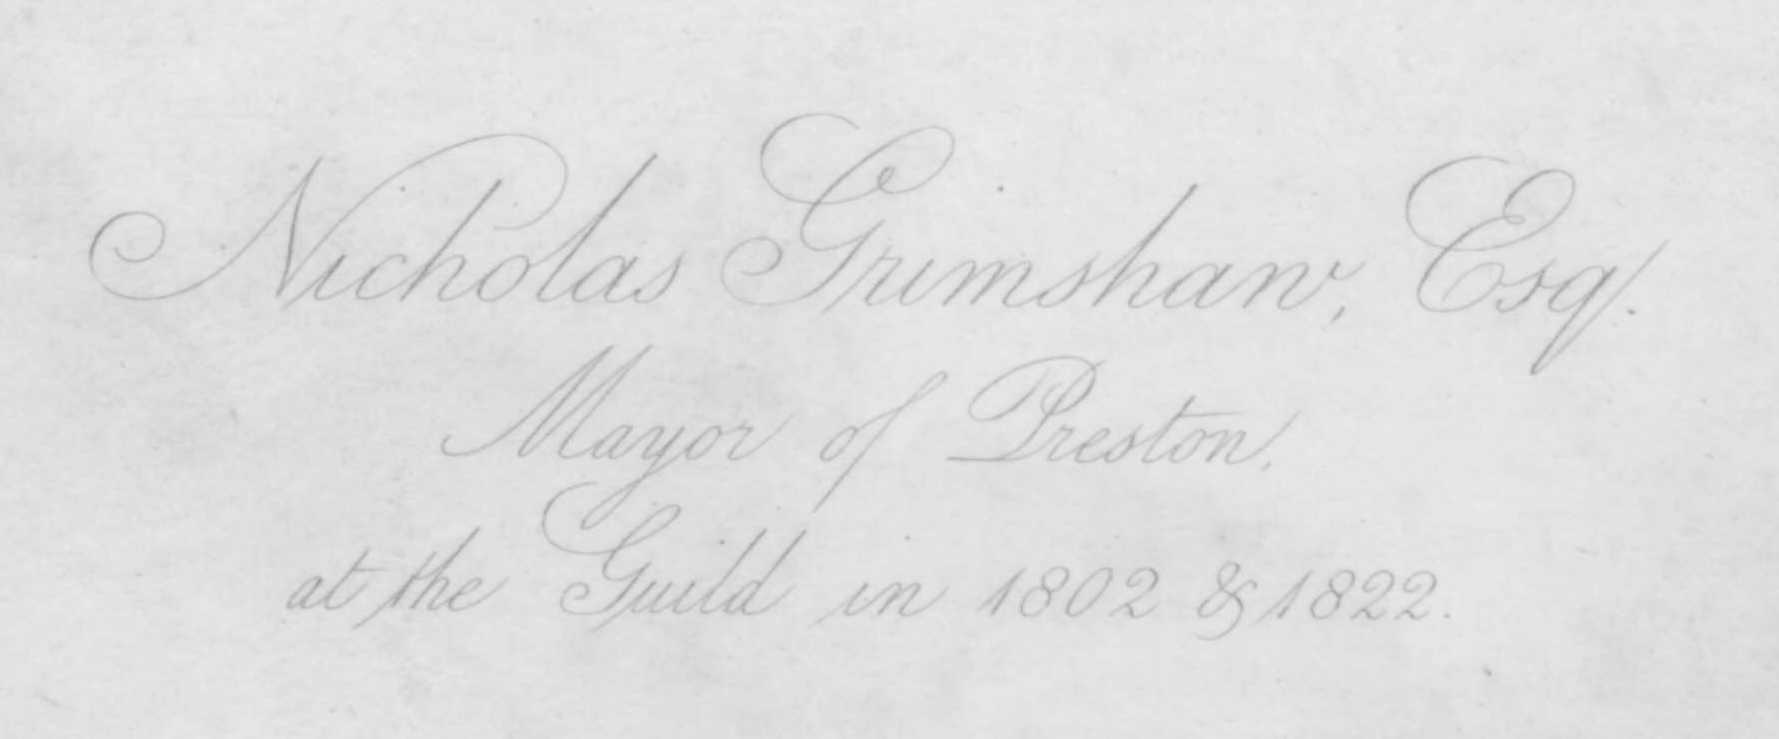 Nicholas Grimshaw, Esq.
Mayor of Preston.
at the Guild in 1802 & 1822.